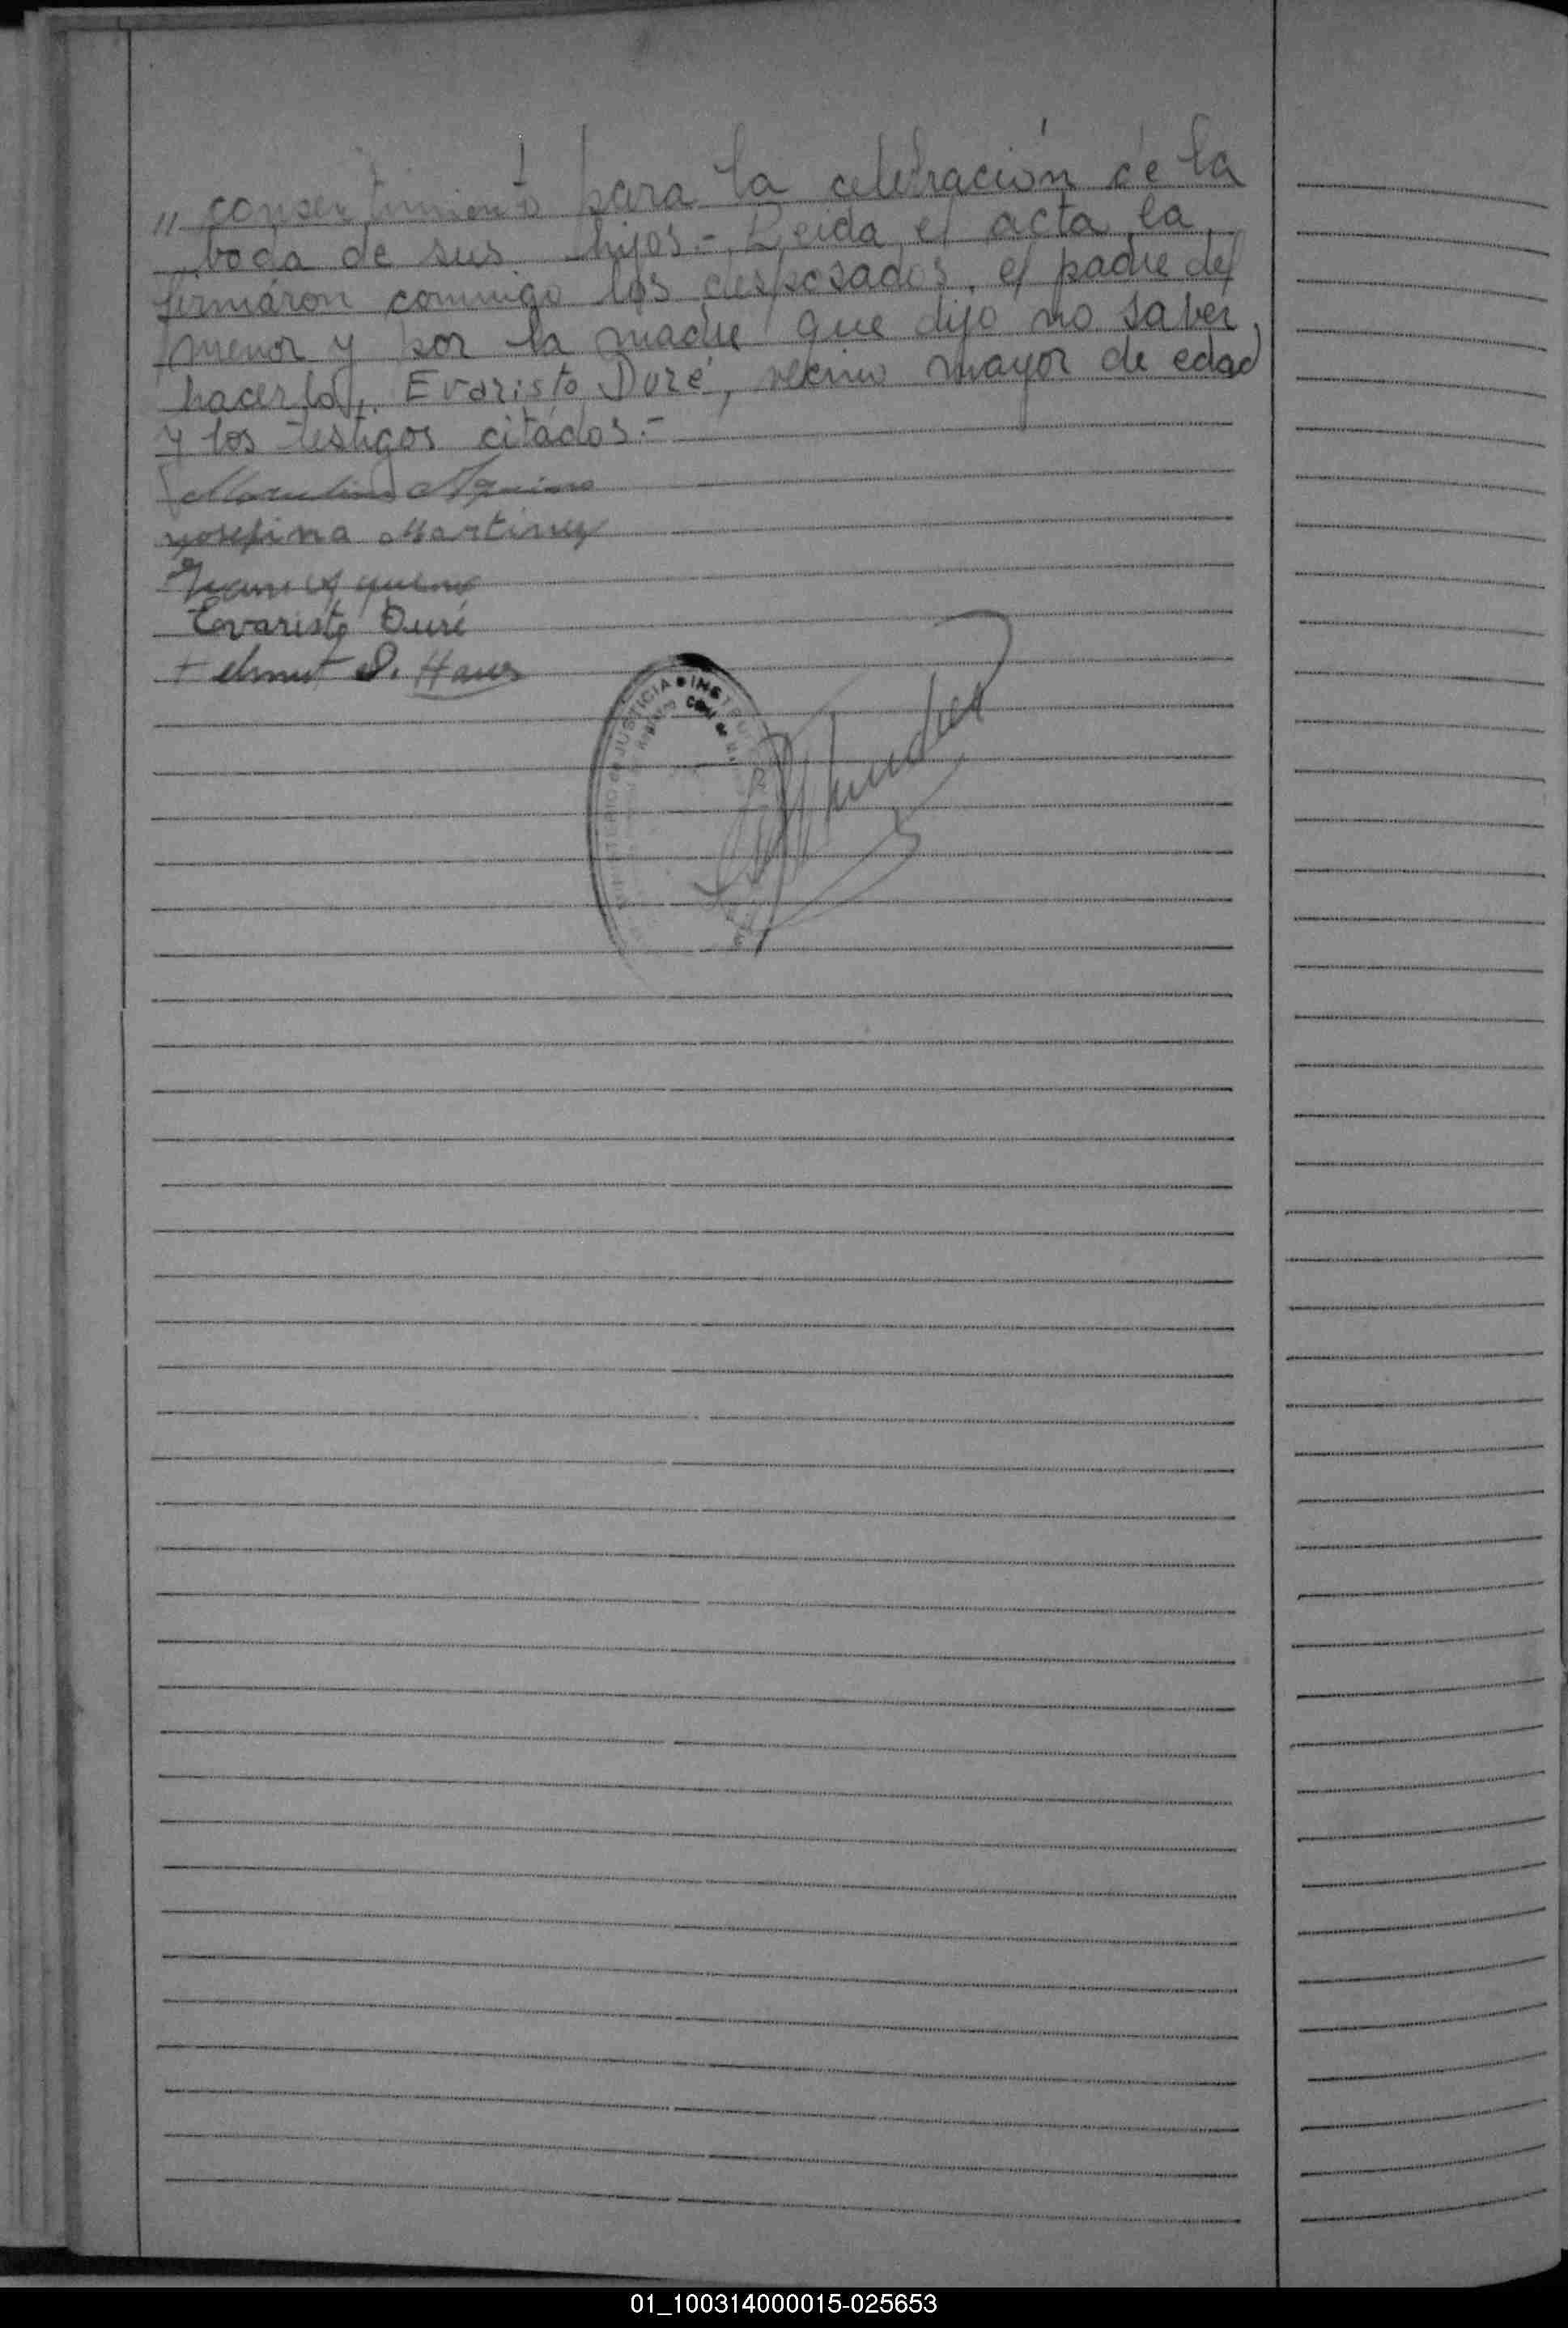 " consentimiento para la celebración de la
boda de sus hijos.- Leida el acta la
firmáron conmigo los desposados, el padre del
menor y por la madre que dijo no saber
hacerlo, Evaristo Duré, vecino mayor de edad
y los testigos citádos.-
Marcelino Aquino
Josefina Martinez
Juan Aquino
Evaristo Duré
Helmut D.
JUSTICIA INST
01_100314000015-025653